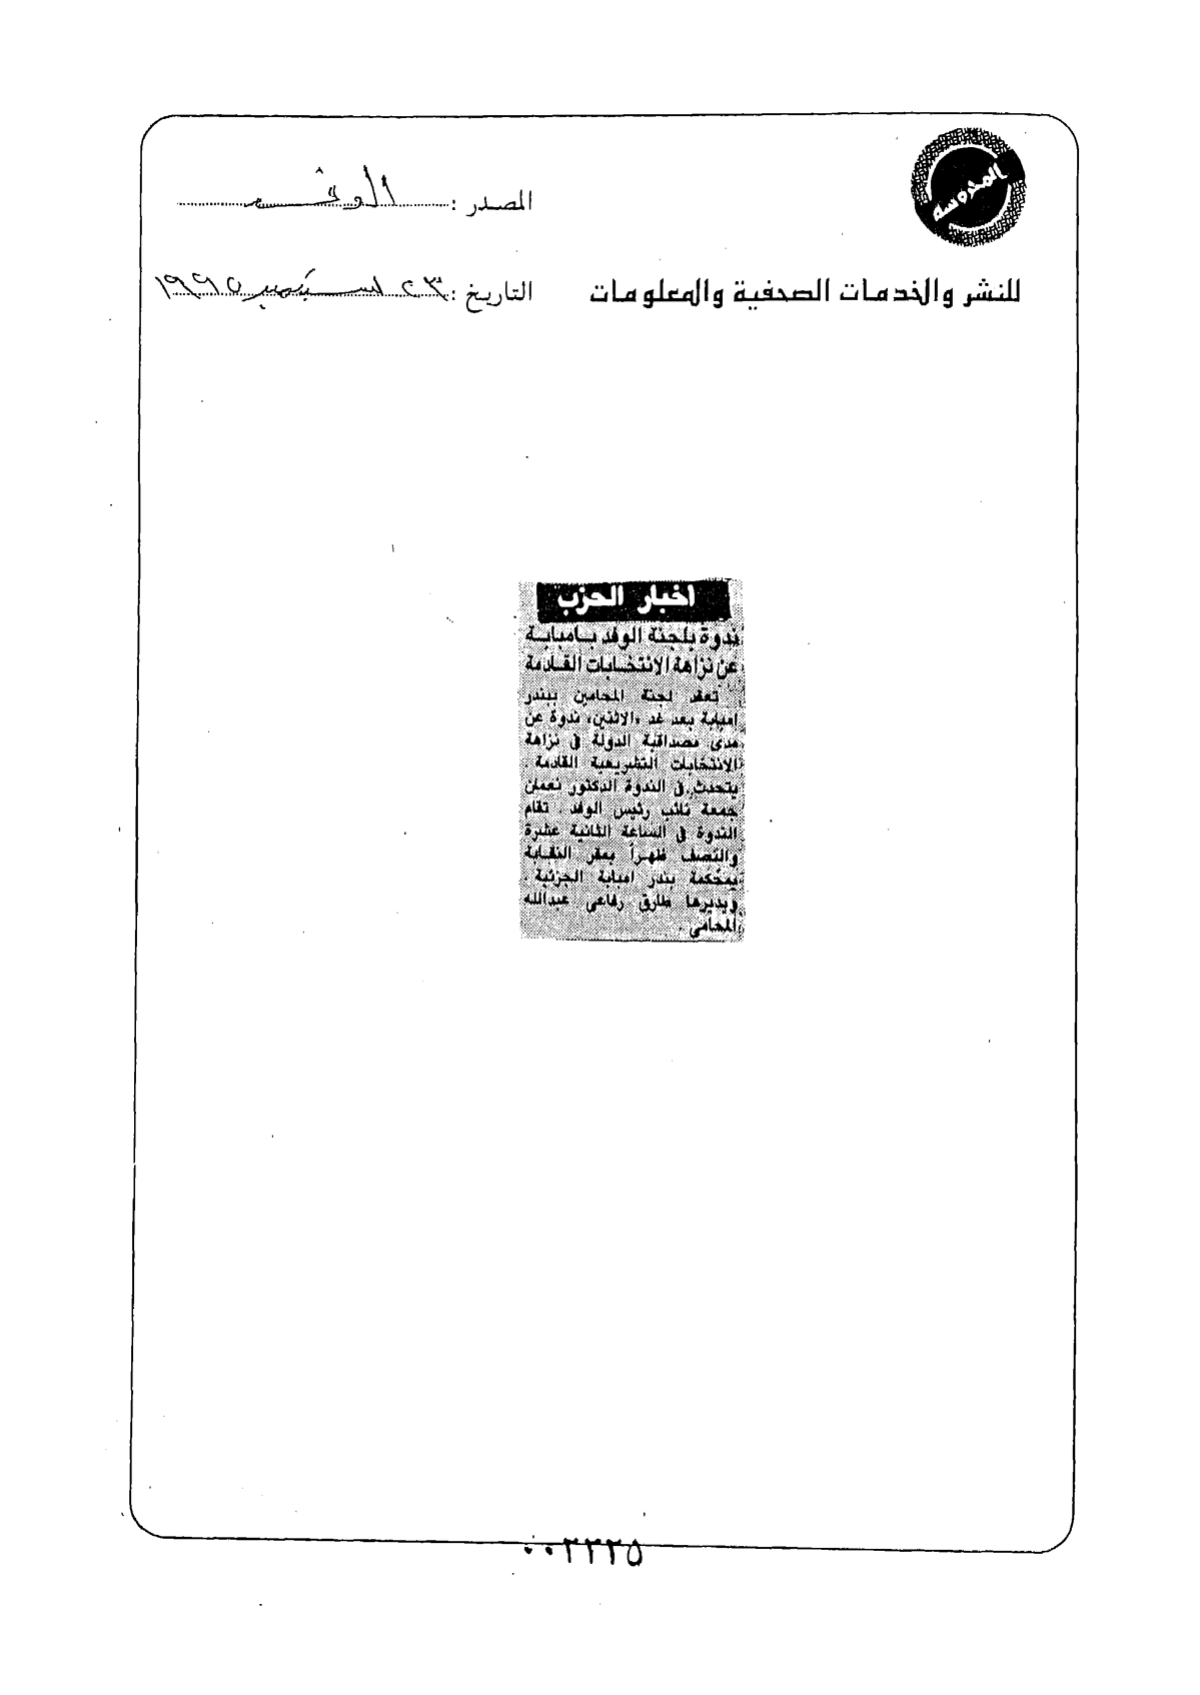 المحروسة
المصدر : الوفد
للنشر والخدمات الصحفية والمعلومات
التاريخ : ٢٣ سبتمبر ١٩٩٥
اخبار الحزب
ندوة بلجنة الوفد بامبابة
عن نزاهة الانتخابات القادمة
تعقد لجنة المحامين ببندر
امبابة بعد غد «الاثنين» ندوة عن
مدى مصداقية الدولة في نزاهة
الانتخابات التشريعية القادمة .
يتحدث في الندوة الدكتور نعمان
جمعة نائب رئيس الوفد . تقام
الندوة في الساعة الثانية عشرة
والنصف ظهراً بمقر النقابة
بمحكمة بندر امبابة الجزئية .
ويديرها طارق رفاعي عبدالله
المحامي .